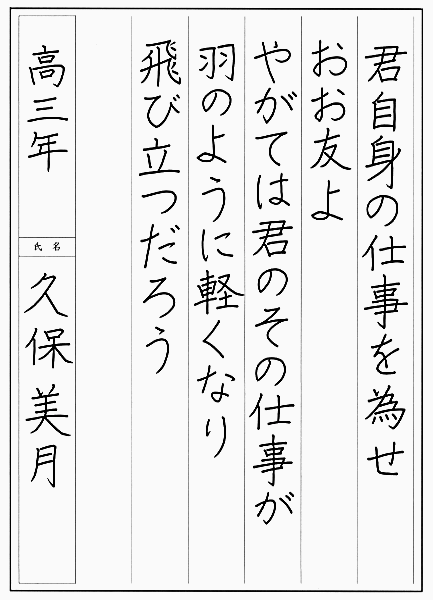 君自身の仕事を為せ
おお友よ
やがては君のその仕事が
羽のように軽くなり
飛び立つだろう
高三年
氏名
久保美月